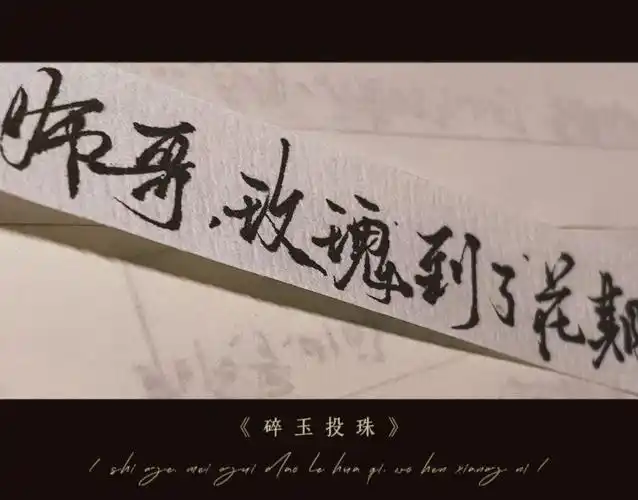 师哥,玫瑰到了花期
《碎玉投珠》
/ shi ge. mei gui dao le hua qi. wo hen xiang ni /